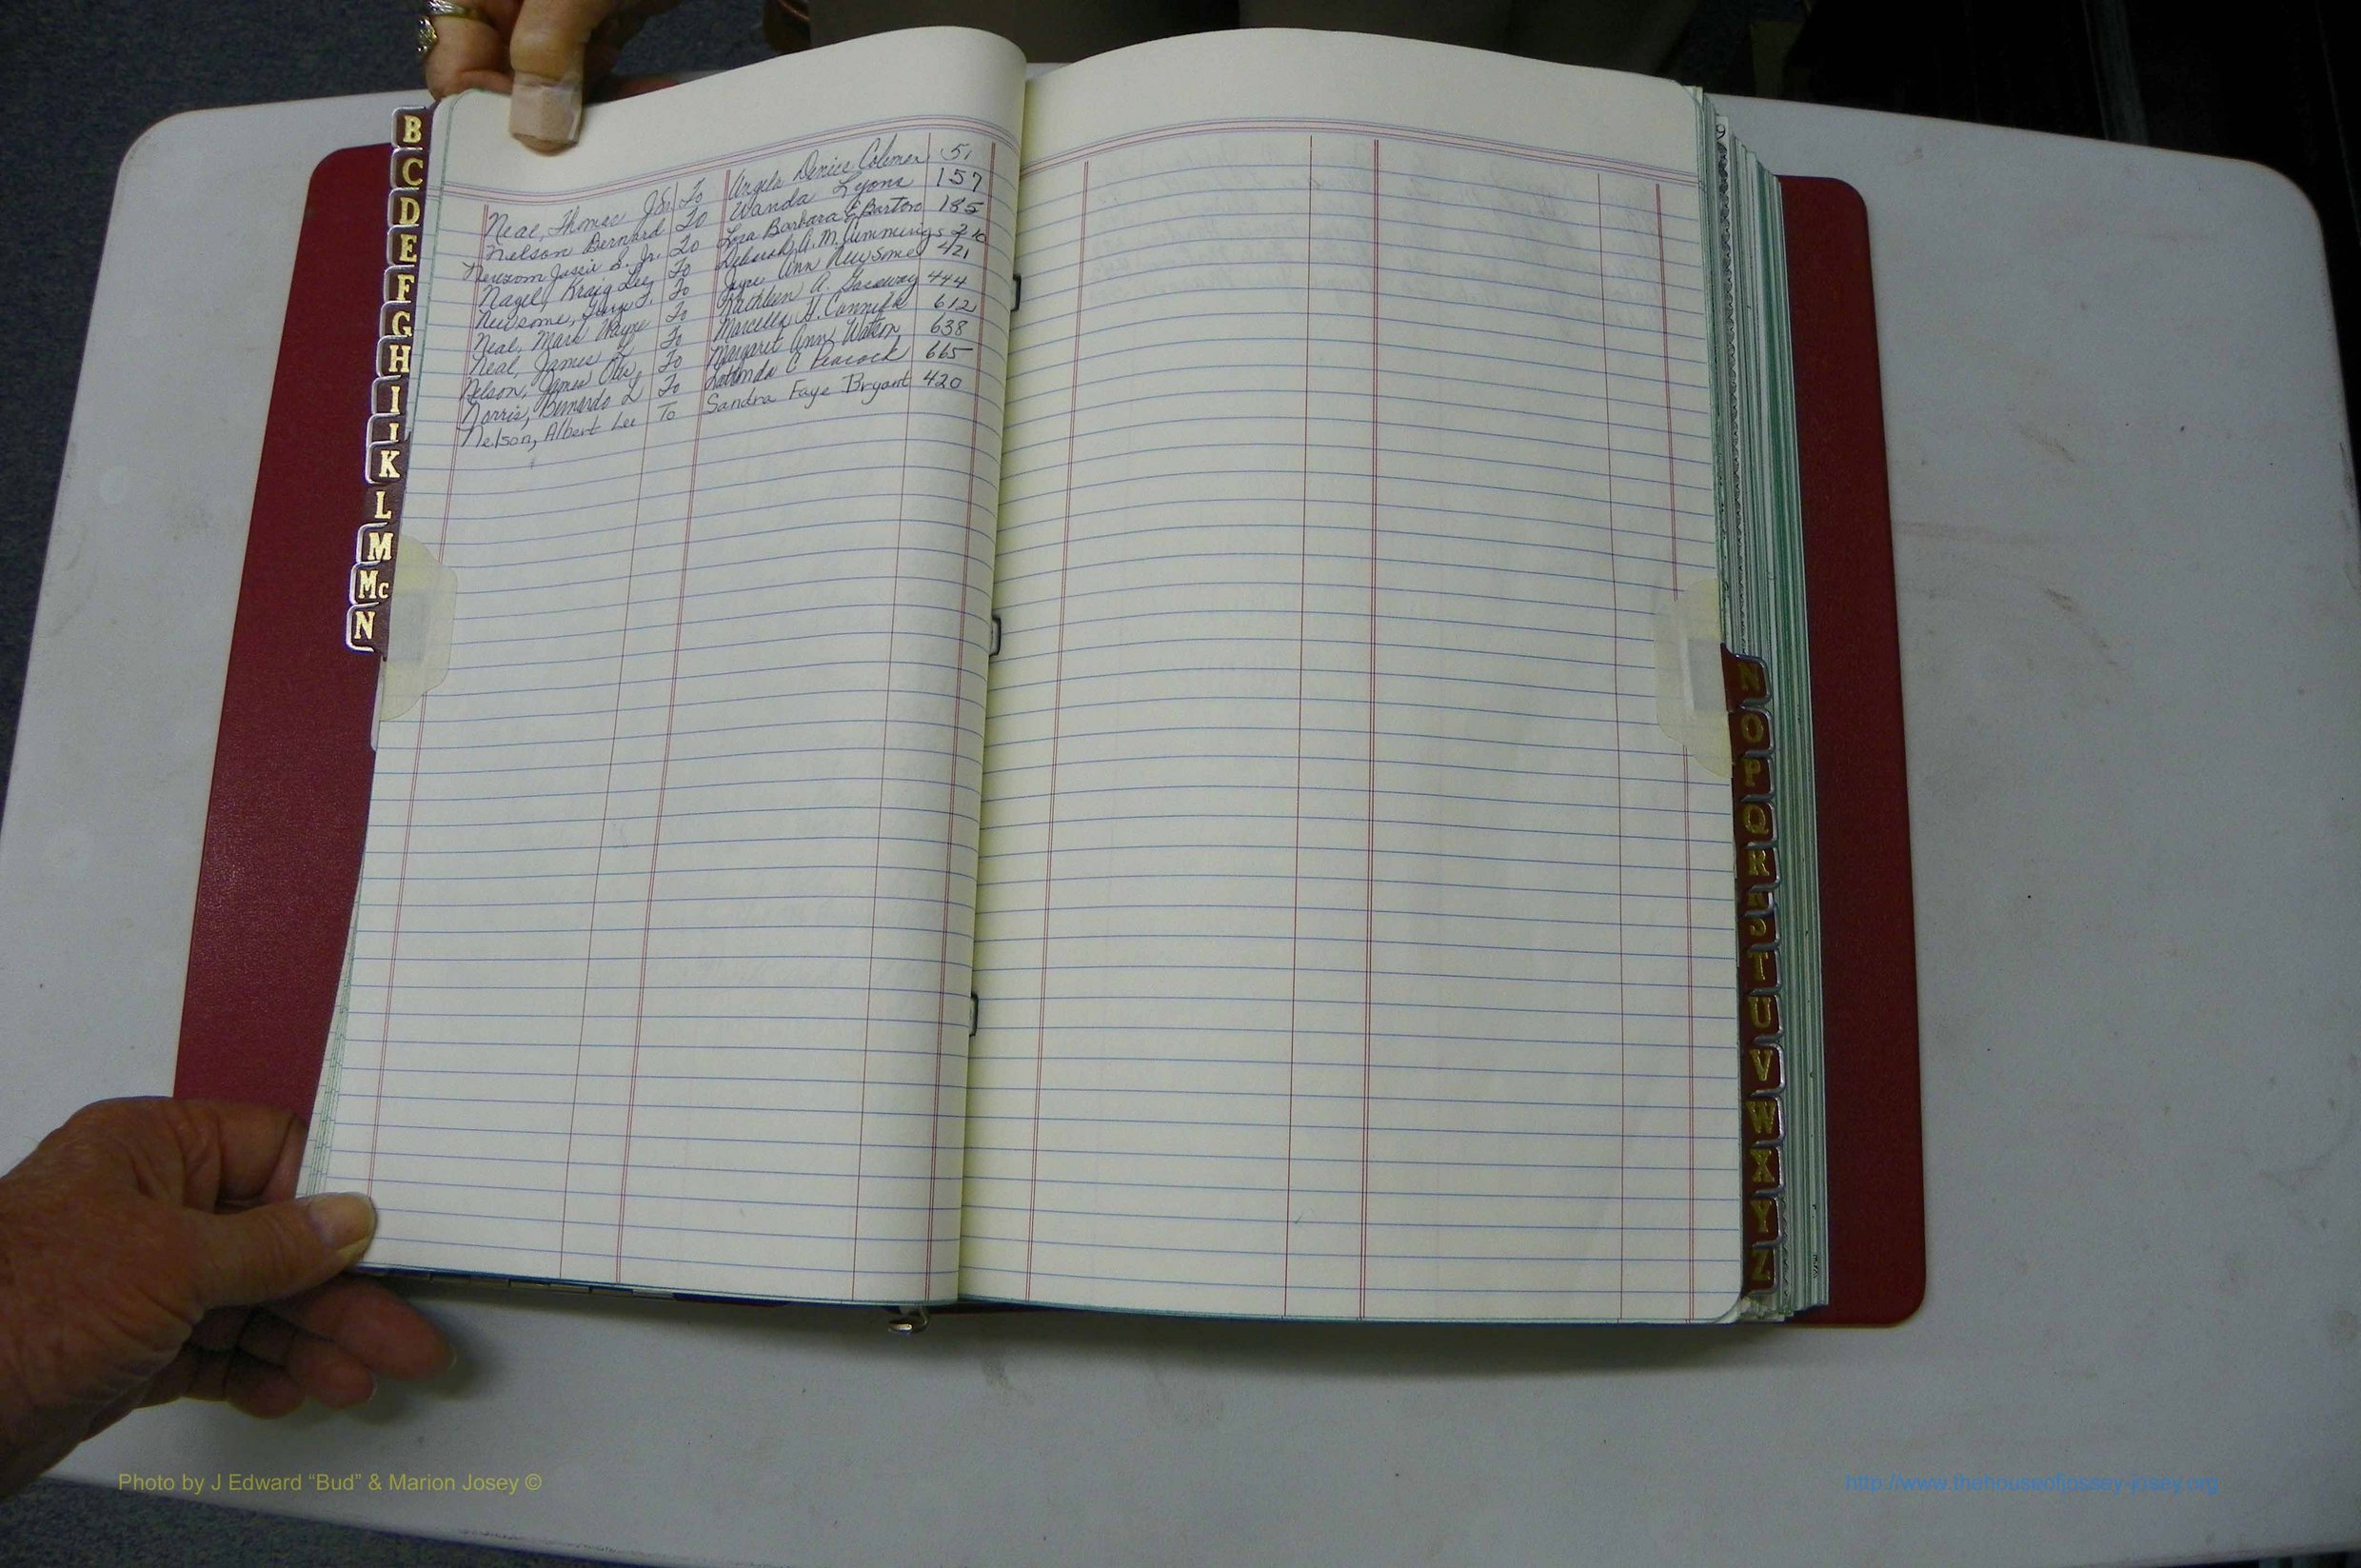 Neal, Thomas Jr. To Angela Denice Coleman 51
Nelson Bernard To Wanda Lyons 157
Newsom Jessie S. Jr. To Barbara E Barton 185
Nagel, Kraig Lee To Deborah A. M. Cummings 210
Newsome, F. To Ann Newsome 421
Neal, Mark Wayne To Kathleen A. 444
Neal, James L To Marcella H. 612
Nelson, James To Margaret Ann Watson 638
Norris, Bernardo L To C Peacock 665
Nelson, Albert Lee To Sandra Faye Bryant 420
B
C
D
E
F
G
H
I
J
K
L
M
Mc
N
N
O
P
Q
R
S
T
U
V
W
X
Y
Z
Photo by J Edward “Bud” & Marion Josey ©
http://www.thehouseofjossey-josey.org